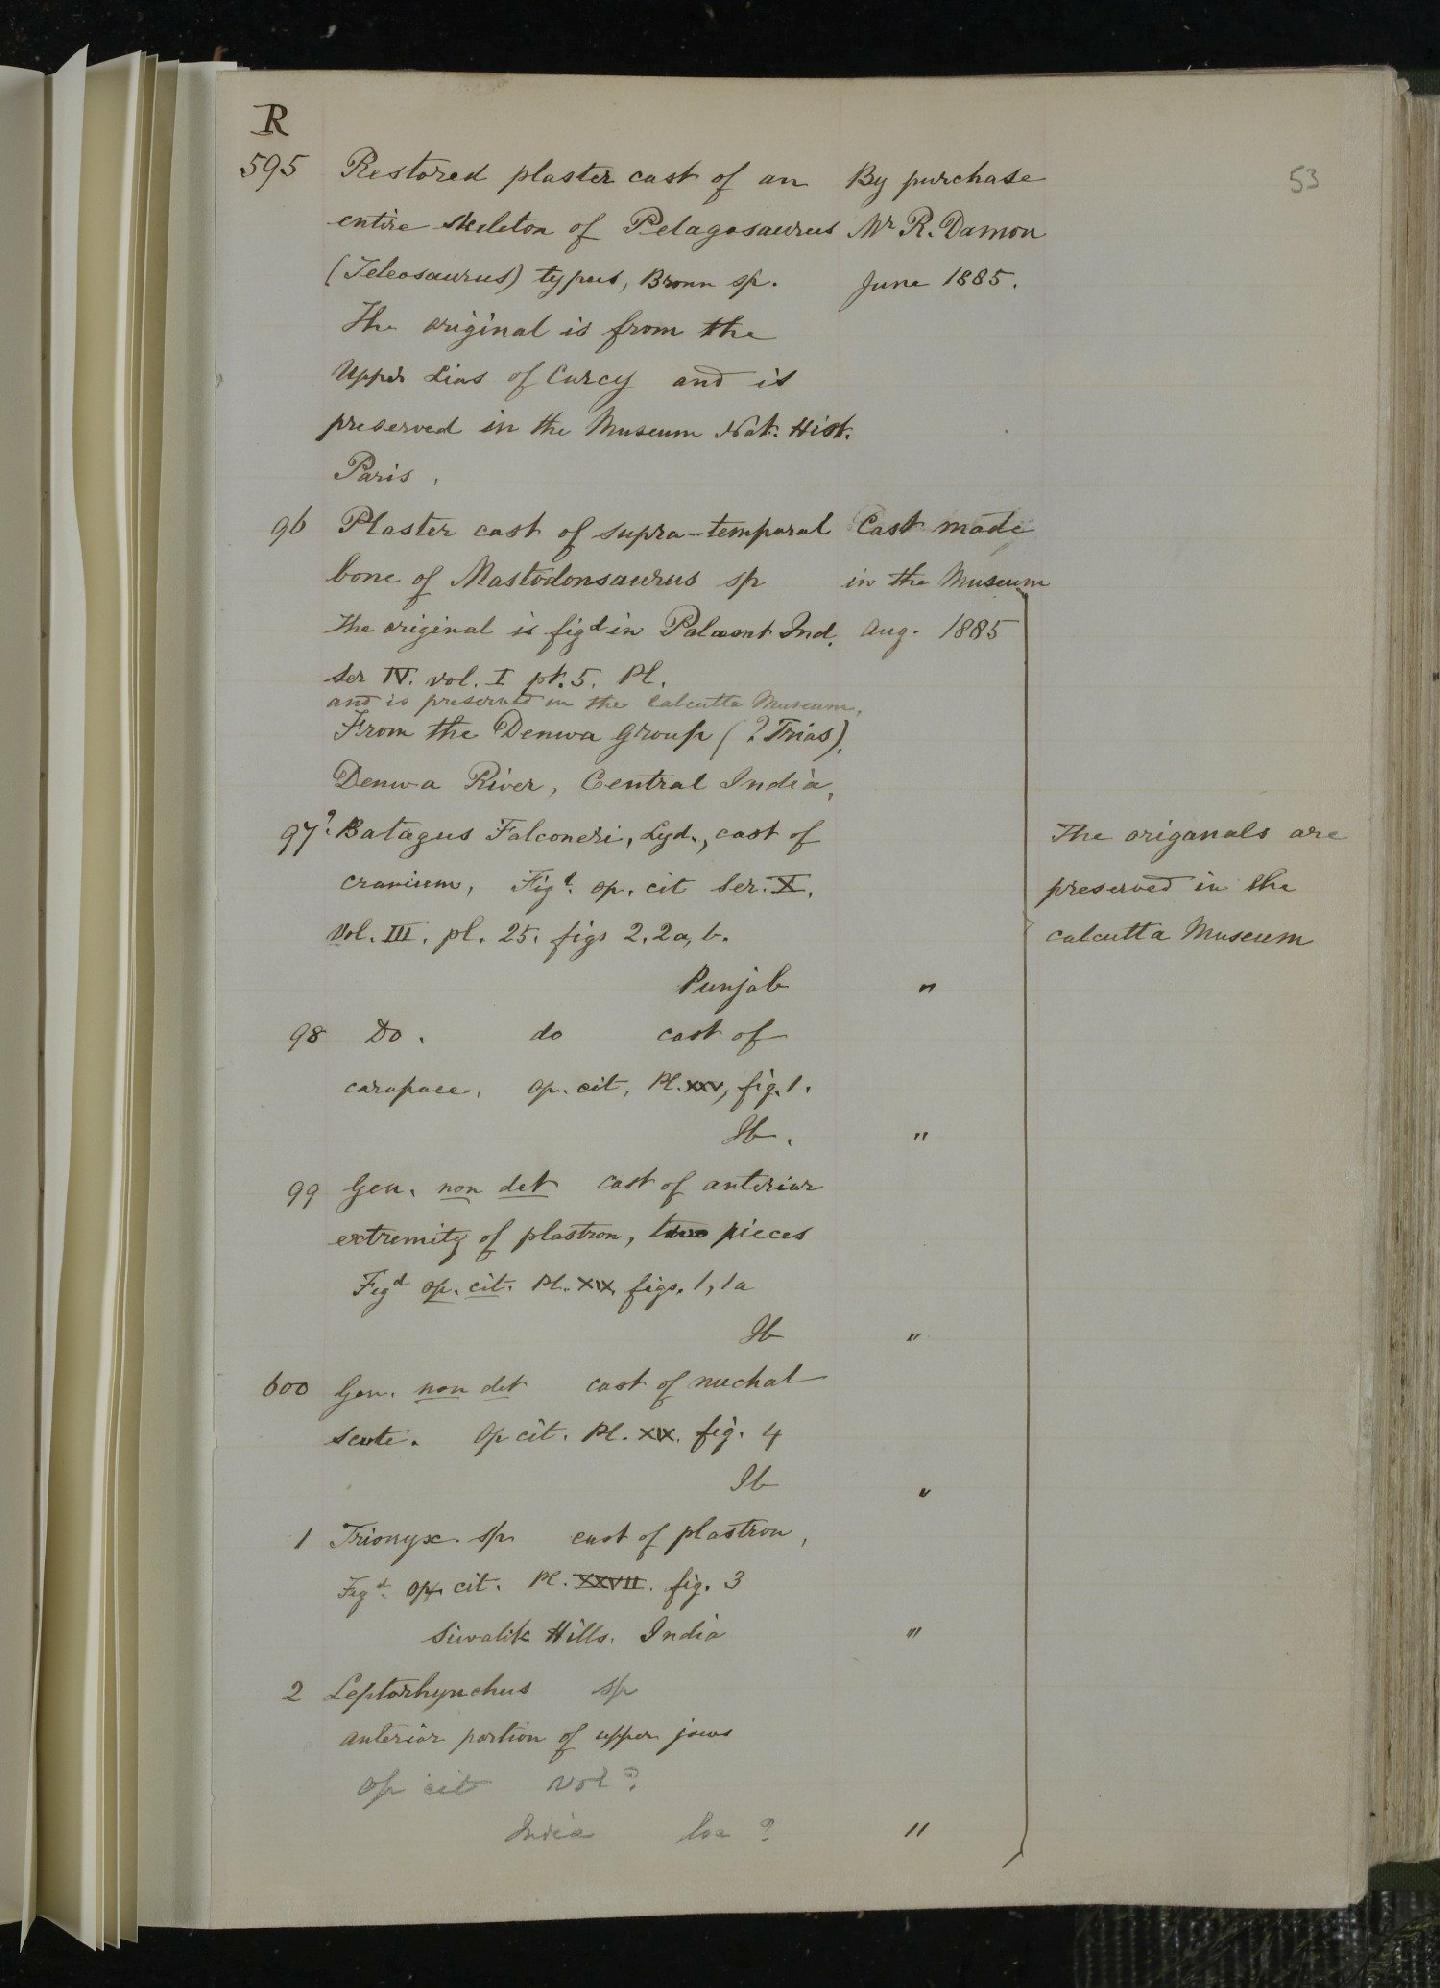 R
53
595 Restored plaster cast of an By purchase
entire skeleton of Pelagosaurus Mr R. Damon
(Teleosaurus) typus, Bronn sp. June 1885.
The original is from the
Upper Lias of Curcy and is
preserved in the Museum Nat. Hist.
Paris.
96 Plaster cast of supra-temporal Cast made
bone of Mastodonsaurus sp in the Museum
The original is figd in Palæont Ind. Aug. 1885
Ser IV. vol. I pt. 5. Pl.
and is preserved in the Calcutta Museum.
From the Denwa group (? Trias),
Denwa River, Central India,
97?. Batagus Falconeri, Lyd., cast of The origanals are
cranium, Figd. op. cit Ser. X. preserved in the
Vol. III. pl. 25. figs 2, 2a, b. calcutta Museum
Punjab "
98 Do. do cast of
carapace. op. cit, Pl. xxv, fig. 1.
Ib. "
99 Gen. non det cast of anterior
extremity of plastron, two pieces
Figd op. cit. Pl. XIX, figs. 1, 1a
Ib "
600 Gen. non det cast of nuchal
scute. Op cit. Pl. XIX. fig. 4
Ib "
1 Trionyx sp cast of plastron,
Figd. op. cit. Pl. XXVII. fig. 3
Siwalik Hills. India "
2 Leptorhynchus sp
anterior portion of upper jaws
op cit vol?
India loc? "